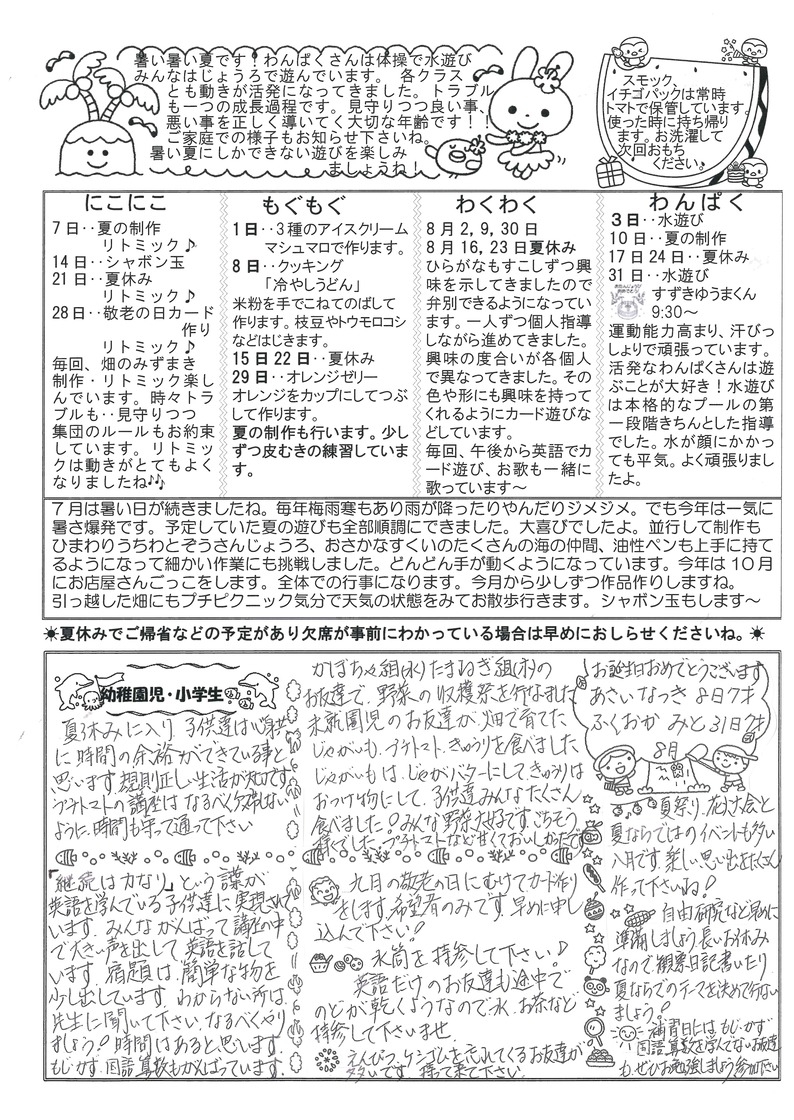 暑い暑い夏です！わんぱくさんは体操で水遊び
みんなはじょうろで遊んでいます。 各クラス
とも動きが活発になってきました。トラブル
も一つの成長過程です。見守りつつ良い事、
悪い事を正しく導いてく大切な年齢です！！
ご家庭での様子もお知らせ下さいね。
暑い夏にしかできない遊びを楽しみ
ましょうね！
スモック、
イチゴパックは常時
トマトで保管しています。
使った時に持ち帰り
ます。お洗濯して
次回おもち
ください。
にこにこ
7日‥夏の制作
リトミック♪
14日‥シャボン玉
21日‥夏休み
リトミック♪
28日‥敬老の日カード
作り
リトミック♪
毎回、畑のみずまき
制作・リトミック楽し
んでいます。時々トラ
ブルも‥見守りつつ
集団のルールもお約束
しています。リトミッ
クは動きがとてもよく
なりましたね♪
もぐもぐ
1日‥3種のアイスクリーム
マシュマロで作ります。
8日‥クッキング
「冷やしうどん」
米粉を手でこねてのばして
作ります。枝豆やトウモロコシ
などはじきます。
15日22日‥夏休み
29日‥オレンジゼリー
オレンジをカップにしてつぶ
して作ります。
夏の制作も行います。少し
ずつ皮むきの練習していま
す。
わくわく
8月2,9,30日
8月16,23日夏休み
ひらがなもすこしずつ興
味を示してきましたので
弁別できるようになってい
ます。一人ずつ個人指導
しながら進めてきました。
興味の度合いが各個人
で異なってきました。その
色や形にも興味を持って
くれるようにカード遊びな
どしています。
毎回、午後から英語でカ
ード遊び、お歌も一緒に
歌っています～
わんぱく
3日‥水遊び
10日‥夏の制作
17日24日‥夏休み
31日‥水遊び
すずきゆうまくん
9:30～
運動能力高まり、汗びっ
しょりで頑張っています。
活発なわんぱくさんは遊
ぶことが大好き！水遊び
は本格的なプールの第
一段階きちんとした指導
でした。水が顔にかかっ
ても平気。よく頑張りまし
たよ。
7月は暑い日が続きましたね。毎年梅雨寒もあり雨が降ったりやんだりジメジメ。でも今年は一気に
暑さ爆発です。予定していた夏の遊びも全部順調にできました。大喜びでしたよ。並行して制作も
ひまわりうちわとぞうさんじょうろ、おさかなすくいのたくさんの海の仲間、油性ペンも上手に持て
るようになって細かい作業にも挑戦しました。どんどん手が動くようになっています。今年は10月
にお店屋さんごっこをします。全体での行事になります。今月から少しずつ作品作りしますね。
引っ越した畑にもプチピクニック気分で天気の状態をみてお散歩行きます。シャボン玉もします～
☀夏休みでご帰省などの予定があり欠席が事前にわかっている場合は早めにおしらせくださいね。☀
幼稚園児・小学生
夏休みに入り、子供達は心身共
に時間の余裕ができている事と
思います。規則正しい生活が大切です。
プチトマトの講座はなるべく欠席しない
ように、時間も守って通って下さい
「継続は力なり」という諺が
英語を学んでいる子供達に実現されて
います。みんながんばって講座の中
で大きい声を出して英語を話して
います。宿題は、簡単な物を
少し出しています。わからない所は、
先生に聞いて下さい。なるべくやり
ましょう！時間はあると思います。
もじかず、国語算数もがんばっています。
かぼちゃ組(水)たまねぎ組(木)の
お友達で、野菜の収穫祭を行ないました
未就園児のお友達が、畑で育てた
じゃがいも、プチトマト、きゅうりを食べました
じゃがいもは、じゃがバターにして、きゅうりは
おつけ物にして、子供達みんなたくさん
食べました！みんな野菜大好きです。ごちそう
様でした。プチトマトなど甘くておいしかったです
九月の敬老の日にむけてカード作り
をします。希望者のみです。早めに申し
込んで下さい！
水筒を持参して下さい♪
英語だけのお友達も途中で
のどが乾くようなので水、お茶など
持参して下さいませ。
えんぴつ、ケシゴムを忘れてくるお友達が
多いです。持って来て下さい。
お誕生日おめでとうございます
あさい なつき 8日7才
ふくおか みと 31日7才
8月
夏祭り、花火大会と
夏ならではのイベントも多い
八月です。楽しい思い出をたくさん
作って下さいね！
自由研究など早めに
準備しましょう。長いお休み
なので、観察日記書いたり
夏ならでのテーマを決めて行ない
ましょう！
補習日にはもじかず
国語算数を学んでないお友達
も、ぜひお勉強しましょう。参加下さい